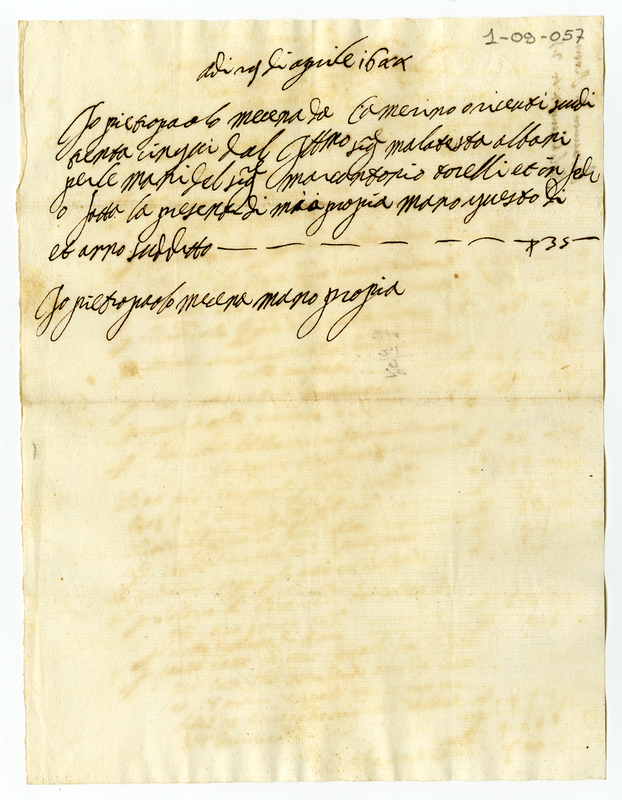 1-09-057
adi 29 di aprile 16
Io pietropaolo mecena da Camerino o riceuti scudi
trenta cinqui dal Illmo sig malatesta albani
per le mani del sig marcantonio torelli et in fede
o fatto la presente di mia propia mano questo di
et anno suddetto — — — — — — 35 —
Io pietropaolo mecena mano propia